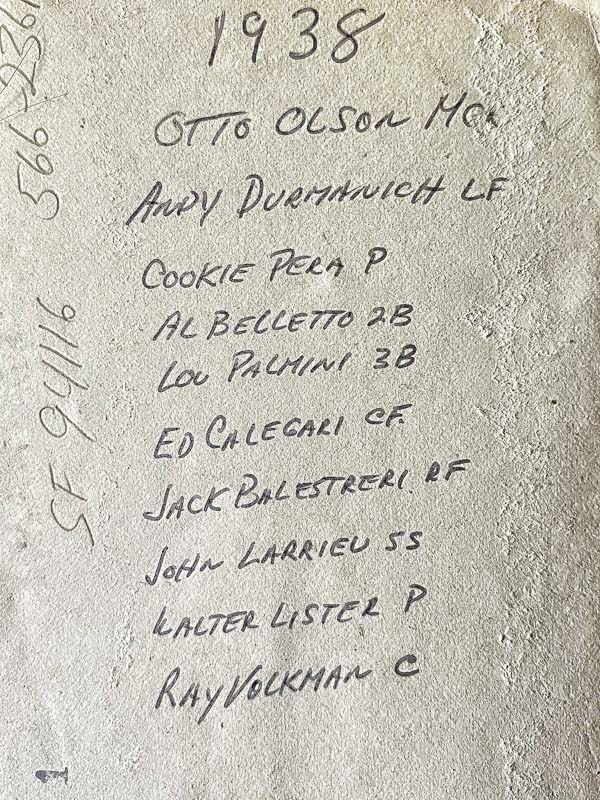 1938
OTTO OLSON MGR
ANDY DURMANICH LF
COOKIE PERA P
AL BELLETTO 2B
LOU PALMINI 3B
ED CALEGARI CF.
JACK BALESTRERI. RF
JOHN LARRIEU SS
WALTER LISTER P
RAY VOLKMAN C
SF 94116
566-2361
1